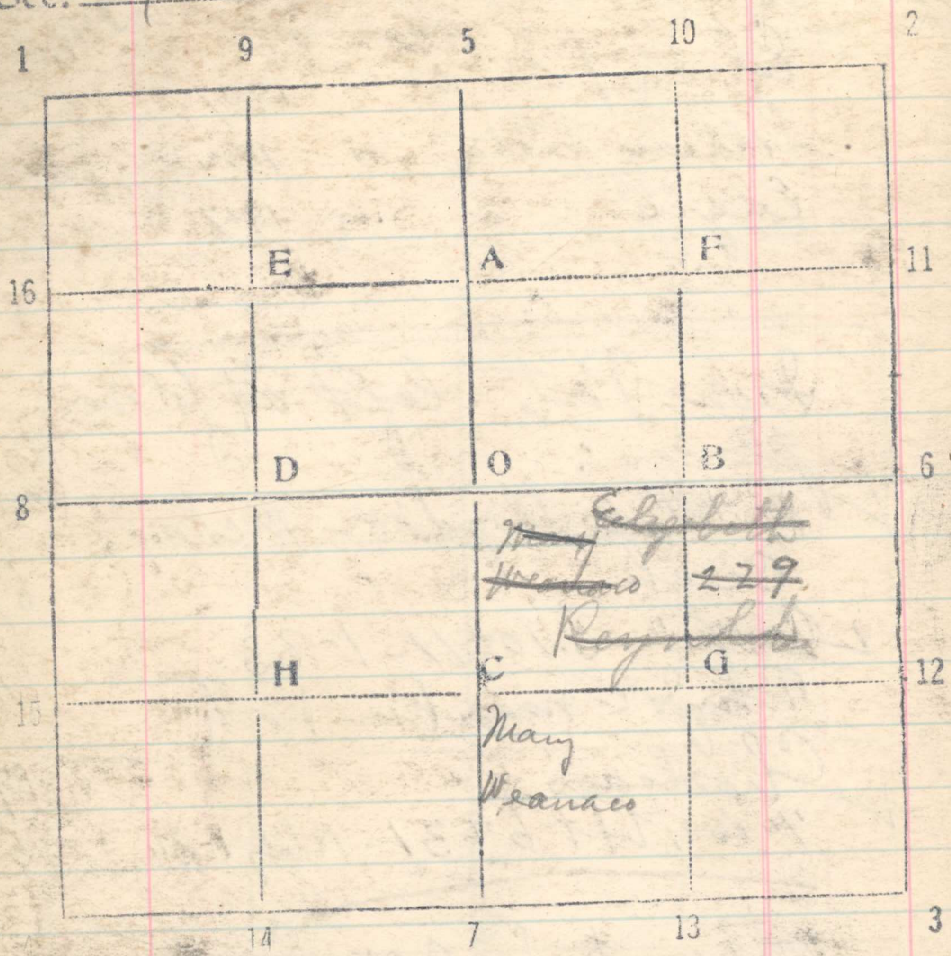 Sec.
1 9 5 10 2
E A F 11
16
D O B 6
8
Elizabeth
Mary
Weanaco 229
Reynolds
H C G 12
15
Mary
Weanaco
14 7 13 3